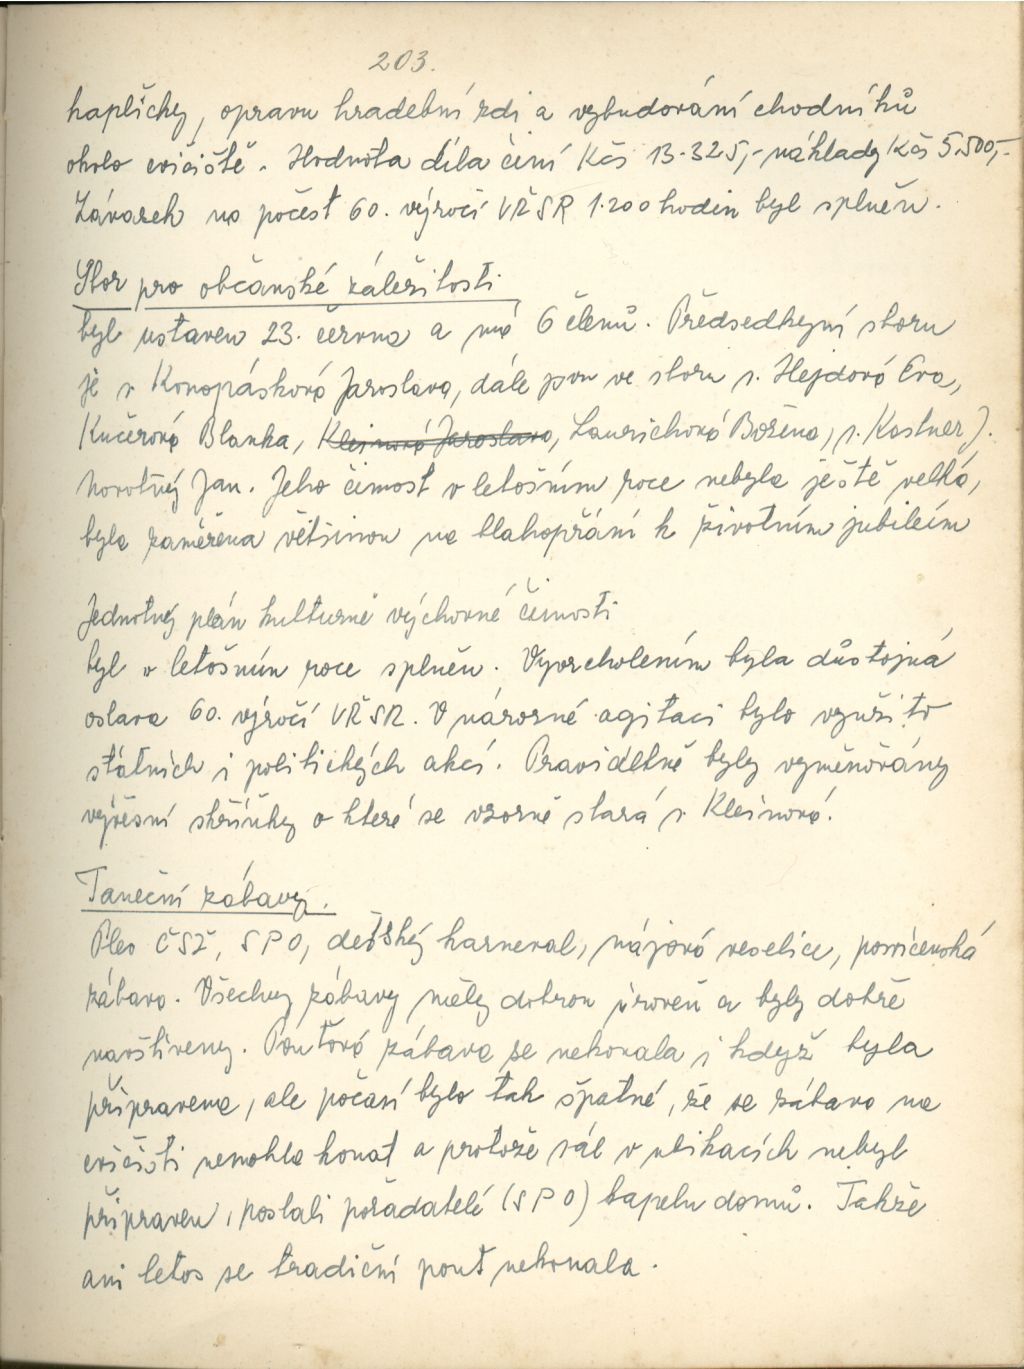 203.
kapličky, opravu hradební zdi a vybudování chodníků
okolo cvičiště. Hodnota díla činí Kčs 13.325,- náklady Kčs 5.500,-.
Závazek na počest 60. výročí VŘSR 1.200 hodin byl splněn.
Sbor pro občanské záležitosti
byl ustaven 23. června a má 6 členů. Předsedkyní sboru
je s. Konopásková Jaroslava, dále jsou ve sboru s. Hejdová Eva,
Kučerová Blanka, Kleinová Jaroslava, Laurichová Božena, s. Kastner J.
Novotný Jan. Jeho činost v letošním roce nebyla ještě velká,
byla zaměřena většinou na blahopřání k životním jubileím
Jednotný plán kulturně výchovné činosti
byl v letošním roce splněn. Vyvrcholením byla důstojná
oslava 60. výročí VŘSR. V názorné agitaci bylo využito
státních i politických akcí. Pravidelně byly vyměňovány
vývěsní skříňky o které se vzorně stará s. Kleinová.
Taneční zábavy.
Ples ČSŽ, SPO, dětský karneval, májová veselice, posvícenská
zábava. Všechny zábavy měly dobrou úroveň a byly dobře
navštíveny. Pouťová zábava se nekonala i když byla
připravena, ale počasí bylo tak špatné, že se zábava na
cvičišti nemohla konat a protože sál v ubikacích nebyl
připraven, poslali pořadatelé (SPO) kapelu domů. Takže
ani letos se tradiční pouť nekonala.